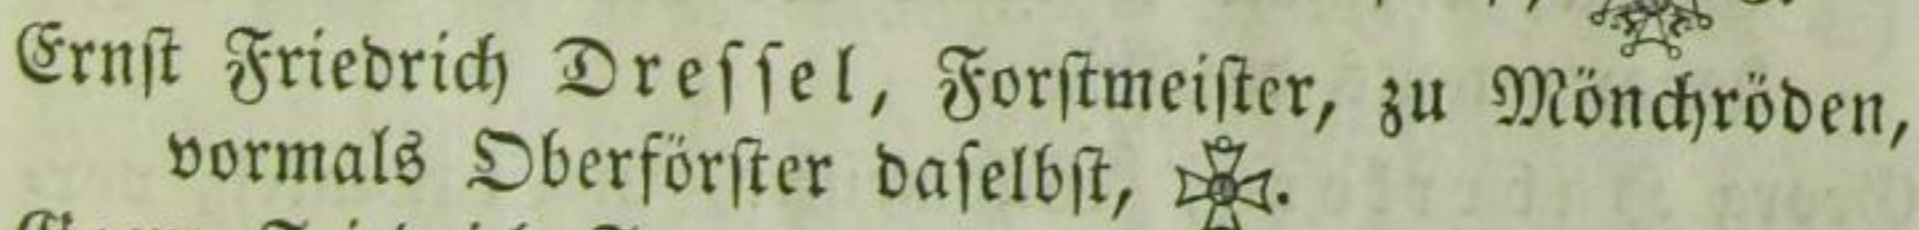 Ernſt Friedrich Dreſſel, Forſtmeiſter, zu Mönchröden,
vormals Oberförſter daſelbſt, ✠.